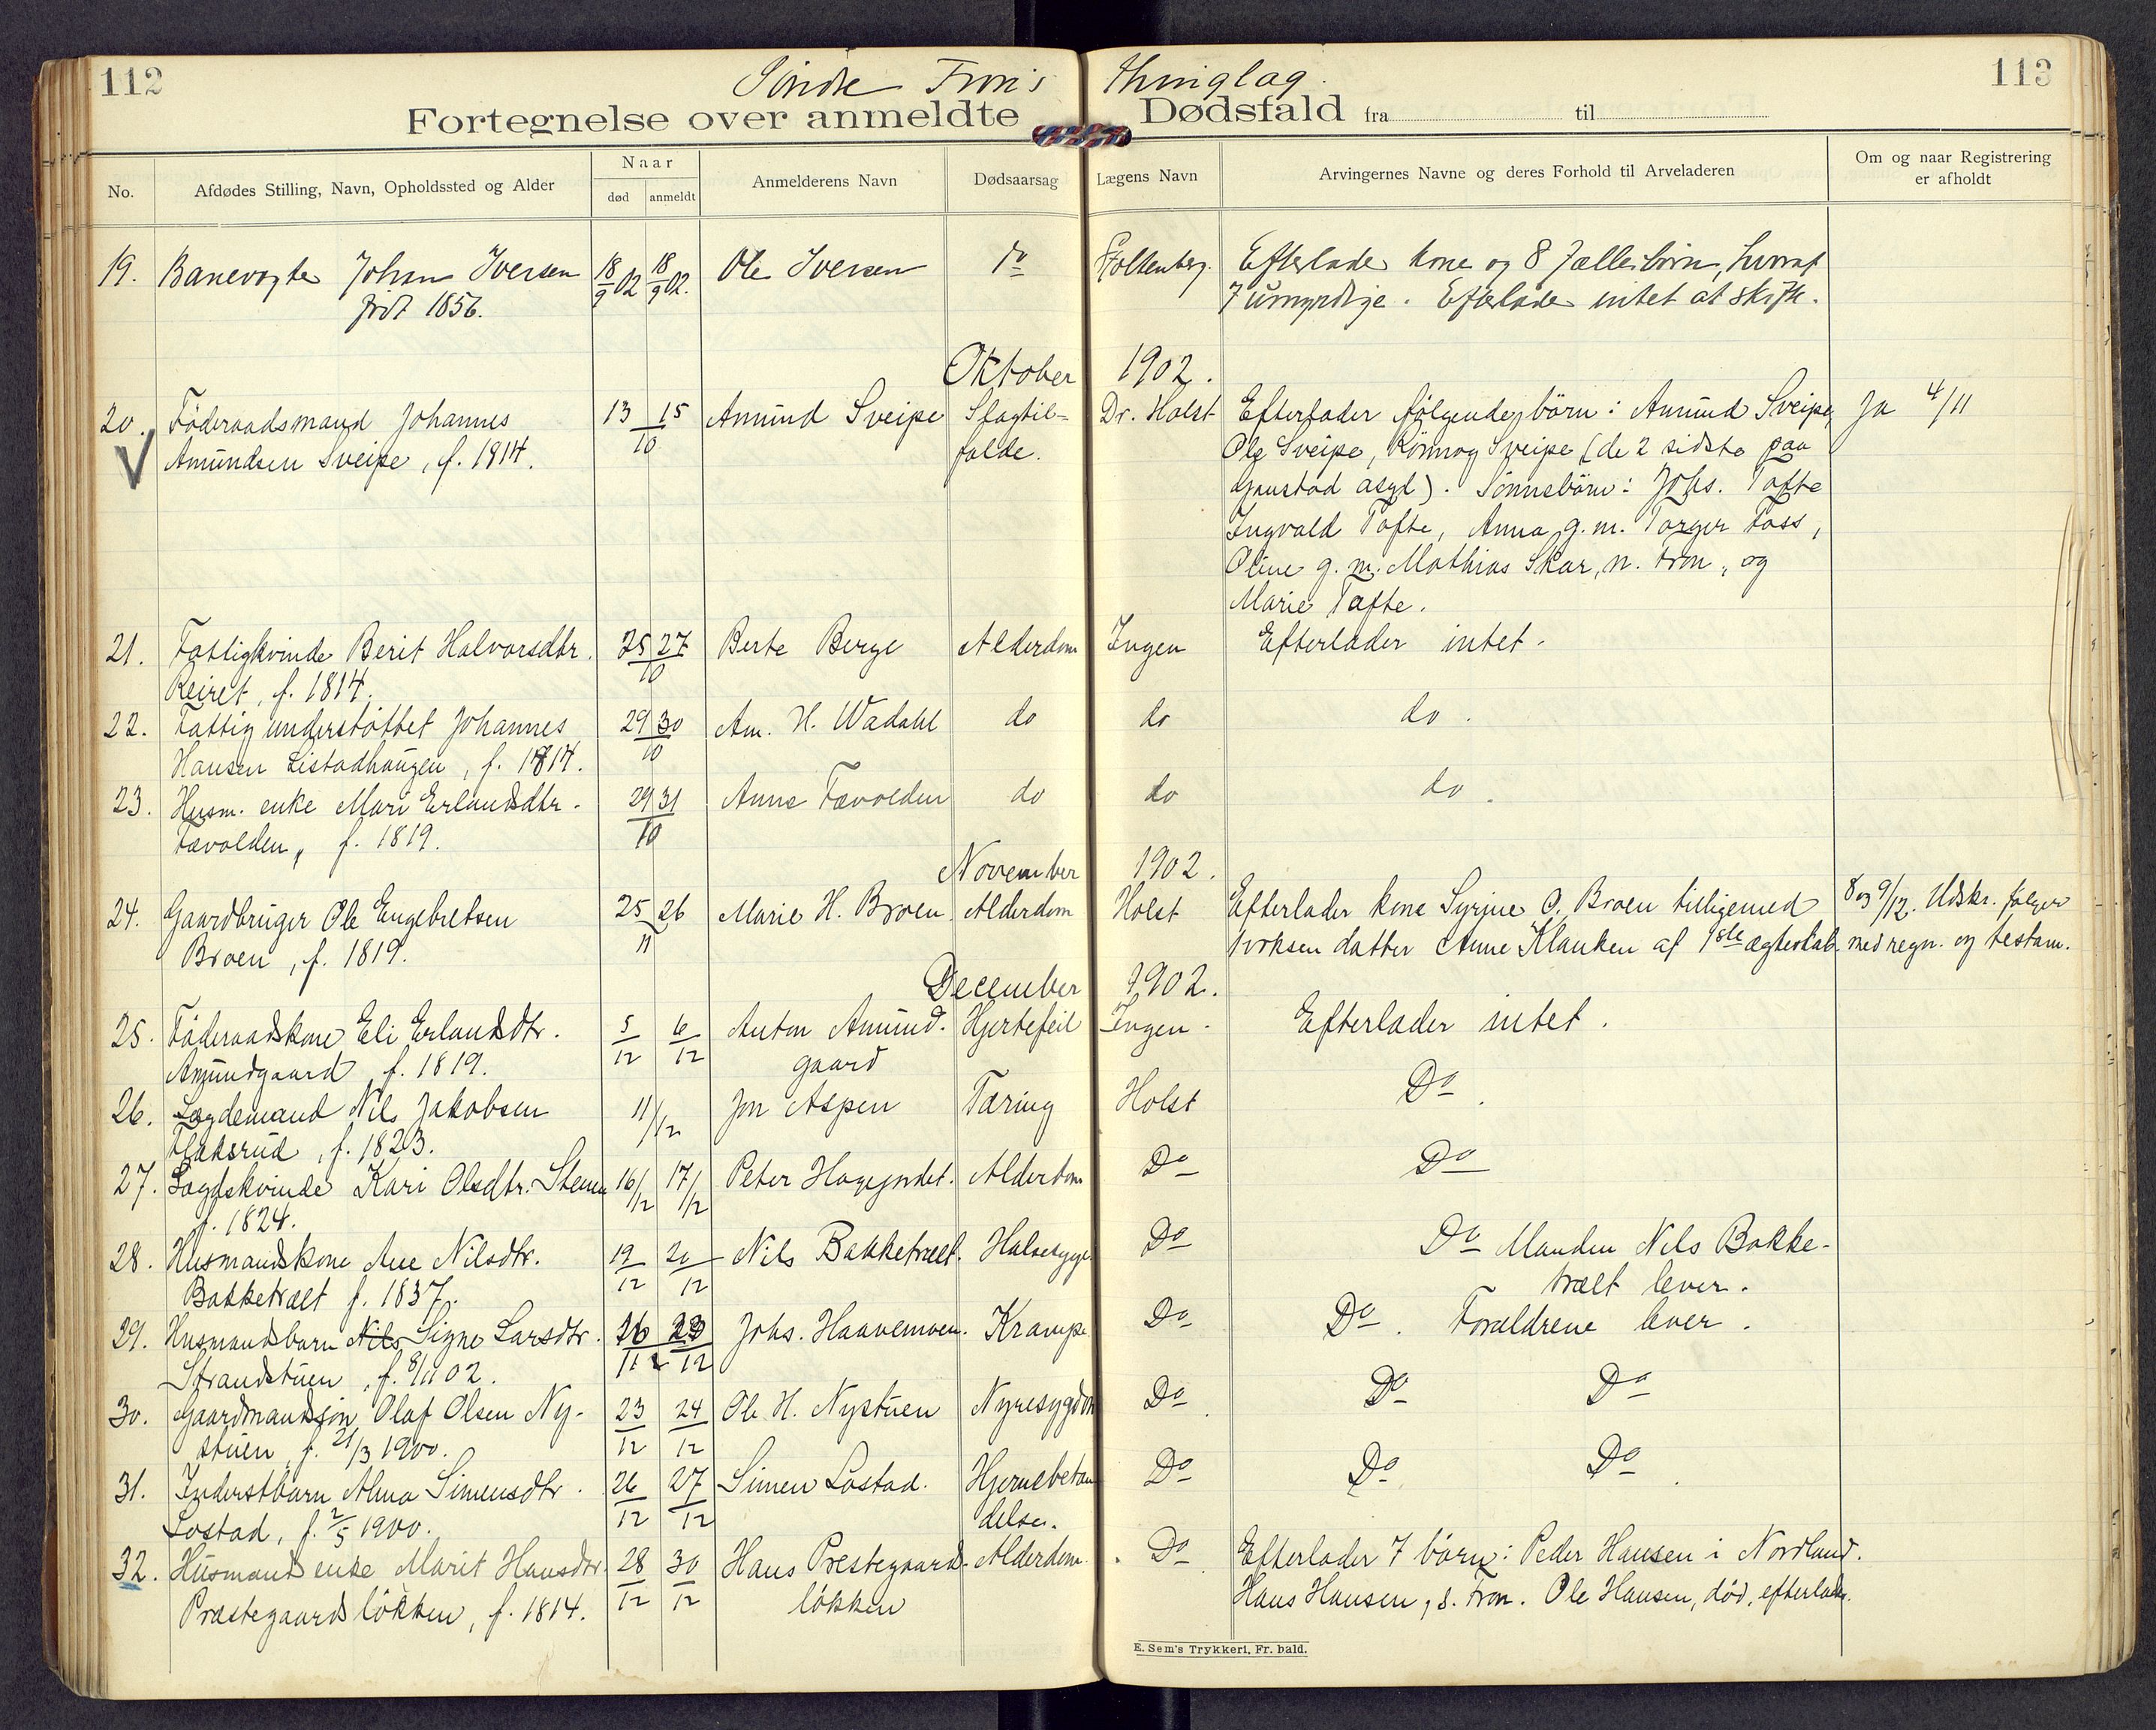 112
Söndre Fron's thinglag.
113
Fortegnelse over anmeldte Dødsfald fra til
No. Afdødes Stilling, Navn, Opholdssted og Alder Naar Anmelderens Navn Dødsaarsag Lægens Navn Arvingernes Navne og deres Forhold til Arveladeren Om og naar Registrering
død anmeldt er afholdt
19. Banevogter Johan Iversen 18/9 02 18/9 02. Ole Iversen Do Stoltenberg. Efterlader kone og 8 fællesbørn, hvoraf
født 1856. 7 umyndige. Efterlader intet at skifte.
Oktober 1902.
20. Föderaadsmand Johannes 13 15 Amund Sveipe Slagtil- Dr. Holst Efterlader følgende börn: Amund Sveipe, Ja 4/11
Amundsen Sveipe, f. 1814. 10 fælde. Ole Sveipe, Rönnog Sveipe (de 2 sidste paa
Gaustad asyl). Sönnebörn: Johs. Tofte
Ingvald Tofte, Anna g. m. Torger Foss,
Oline g. m. Mathias Skar, n. Fron, og
Marie Tofte.
21. Fattigkvinde Berit Halvorsdtr. 25 27 Berte Berge Alderdom Ingen Efterlader intet.
Reiret, f. 1814. 10
22. Fattig understöttet Johannes 29 30 Am. H. Wadahl do do do.
Hansen Listadhaugen, f. 1814. 10
23. Husm. enke Mari Erlandsdtr. 29 31 Anne Fævolden do do do.
Fævolden, f. 1819. 10
November 1902.
24. Gaardbruger Ole Engebretsen 25 26 Marie H. Broen Alderdom Holst Efterlader kone Syrjne O. Broen tilligemed 8 og 9/12. Udskr. følger
Broen, f. 1819. 11 voksen datter Anne Klauken af 1ste ægteskab. med regn. og testam.
December 1902.
25. Föderaadskone Eli Erlandsdtr. 5/12 6/12 Anton Amund- Hjertefeil Ingen. Efterlader intet.
Amundgaard f. 1819. gaard
26. Lægdemand Nils Jakobsen 11/12 Jon Aspen Tæring Holst Do.
Flaksrud, f. 1823.
27. Lægdskvinde Kari Olsdtr. Stenen 16/12 17/12 Peter Hageyordet. Alderdom Do Do
f. 1824.
28. Husmandskone Ane Nilsdtr. 19/12 20/12 Nils Bakketrælt. Halsesyge Do Do Manden Nils Bakke-
Bakketrælt f. 1837. trælt lever.
29. Husmandsbarn Nils Signe Larsdtr. 26/11 23/12 Johs. Haavemoen. Krampe Do Do. Forældrene lever.
Strandstuen, f. 8/11 02.
30. Gaardmandssön Olaf Olsen Ny- 23/12 24/12 Ole H. Nystuen Nyresygdom Do Do Do
stuen, f. 21/3 1900.
31. Inderstbarn Alma Simensdtr. 26/12 27/12 Simen Lostad. Hjernebetæn Do Do Do.
Lostad, f. 2/5 1900. delse.
32. Husmands enke Marit Hansdtr. 28/12 30/12 Hans Prestegaards- Alderdom. Do Efterlader 7 börn: Peder Hansen i Nordland.
Præstegaardslökken, f. 1814. lökken Hans Hansen, s. Fron. Ole Hansen, död, efterlader.
E. Sem's Trykkeri, Fr. hald.